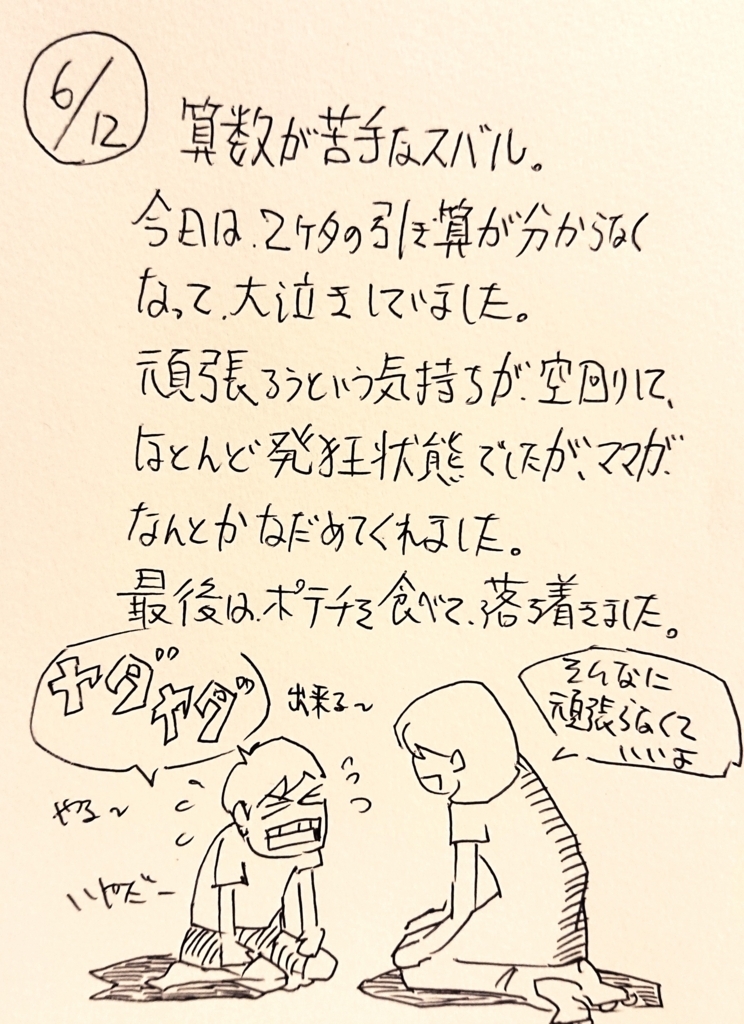 6/12
算数が苦手なスバル。
今日は、2ケタの引き算が分からなく
なって、大泣きしていました。
頑張ろうという気持ちが、空回りして、
ほとんど発狂状態でしたが、ママが、
なんとかなだめてくれました。
最後は、ポテチを食べて、落ち着きました。
ヤダ"ヤダ"
出来る〜
そんなに
頑張らなくて
いいよ
やる〜
いやだー